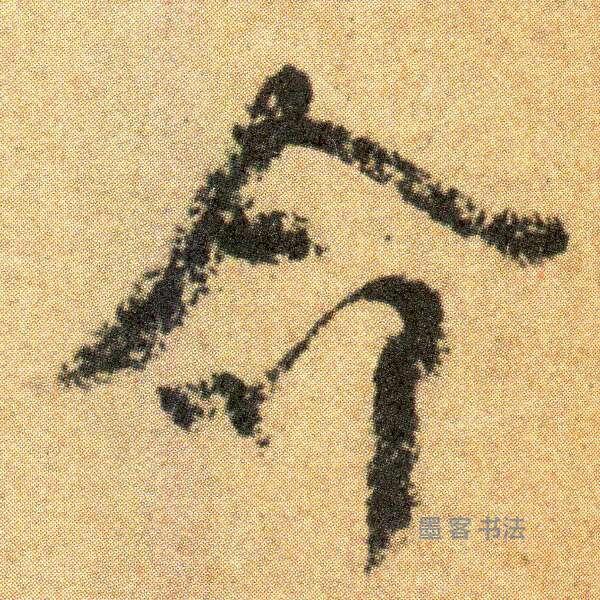 今
墨客书法